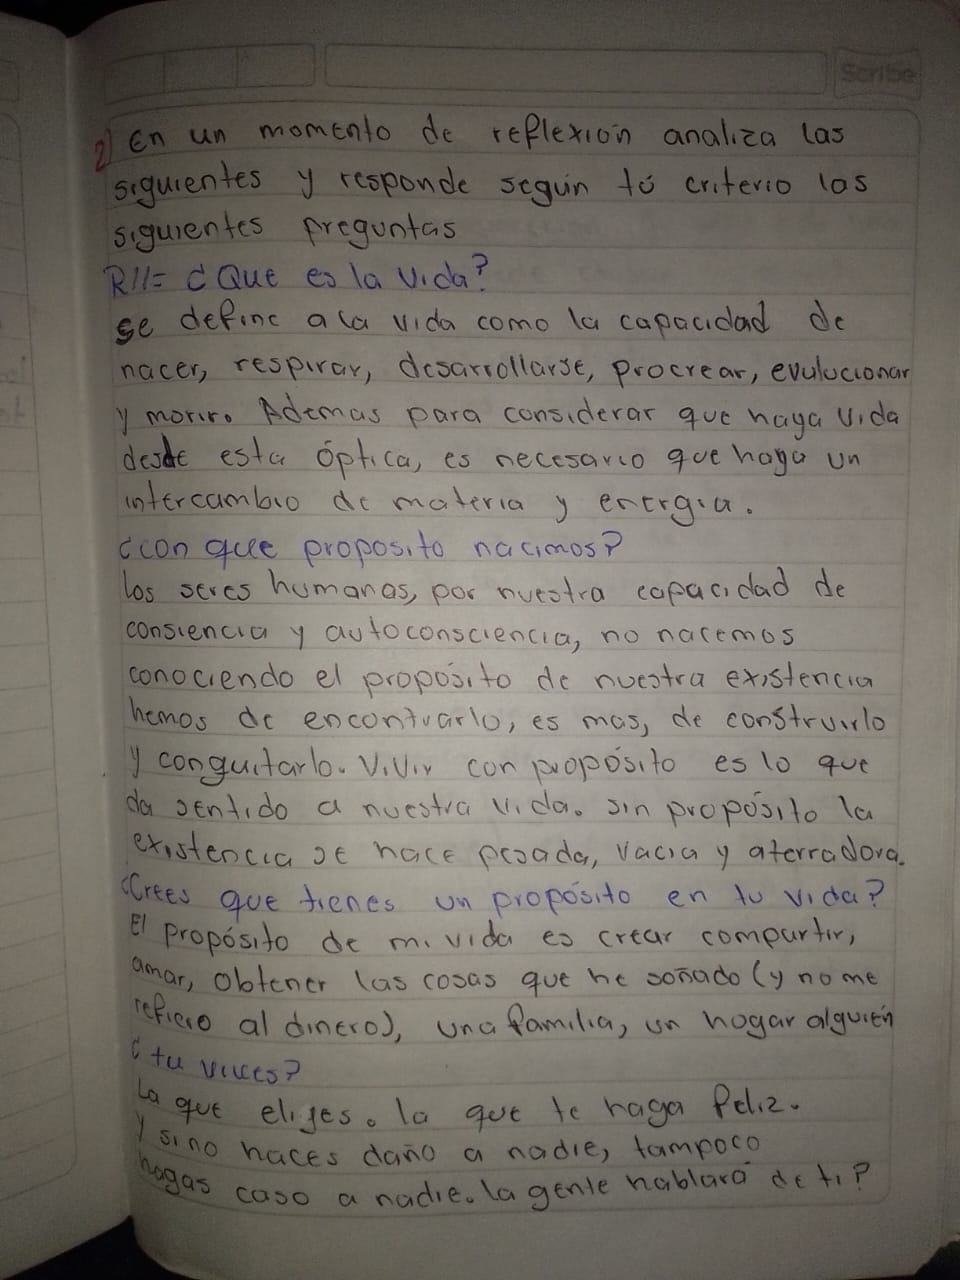 Scribe
2) En un momento de reflexión analiza las
siguientes y responde según tó criterio las
siguientes preguntas
R//= ¿Que es la vida?
se define a la vida como la capacidad de
nacer, respirar, desarrollarse, procrear, evulucionar
y morir. Ademas para considerar que haya vida
desde esta óptica, es necesario que haya un
intercambio de materia y energia.
¿con que proposito nacimos?
los seres humanos, por nuestra capacidad de
consiencia y autoconsciencia, no nacemos
conociendo el propósito de nuestra existencia
hemos de encontrarlo, es mas, de construirlo
y conquitarlo. Vivir con propósito es lo que
da sentido a nuestra vida. sin propósito la
existencia se hace pesada, vacia y aterradora.
¿Crees que tienes un propósito en tu vida?
El propósito de mi vida es crear compartir,
amar, obtener las cosas que he soñado (y no me
refiero al dinero), una familia, un hogar alguién
¿tu vives?
La que eliges. la que te haga feliz.
Y si no haces daño a nadie, tampoco
hagas caso a nadie. la gente hablará de ti?